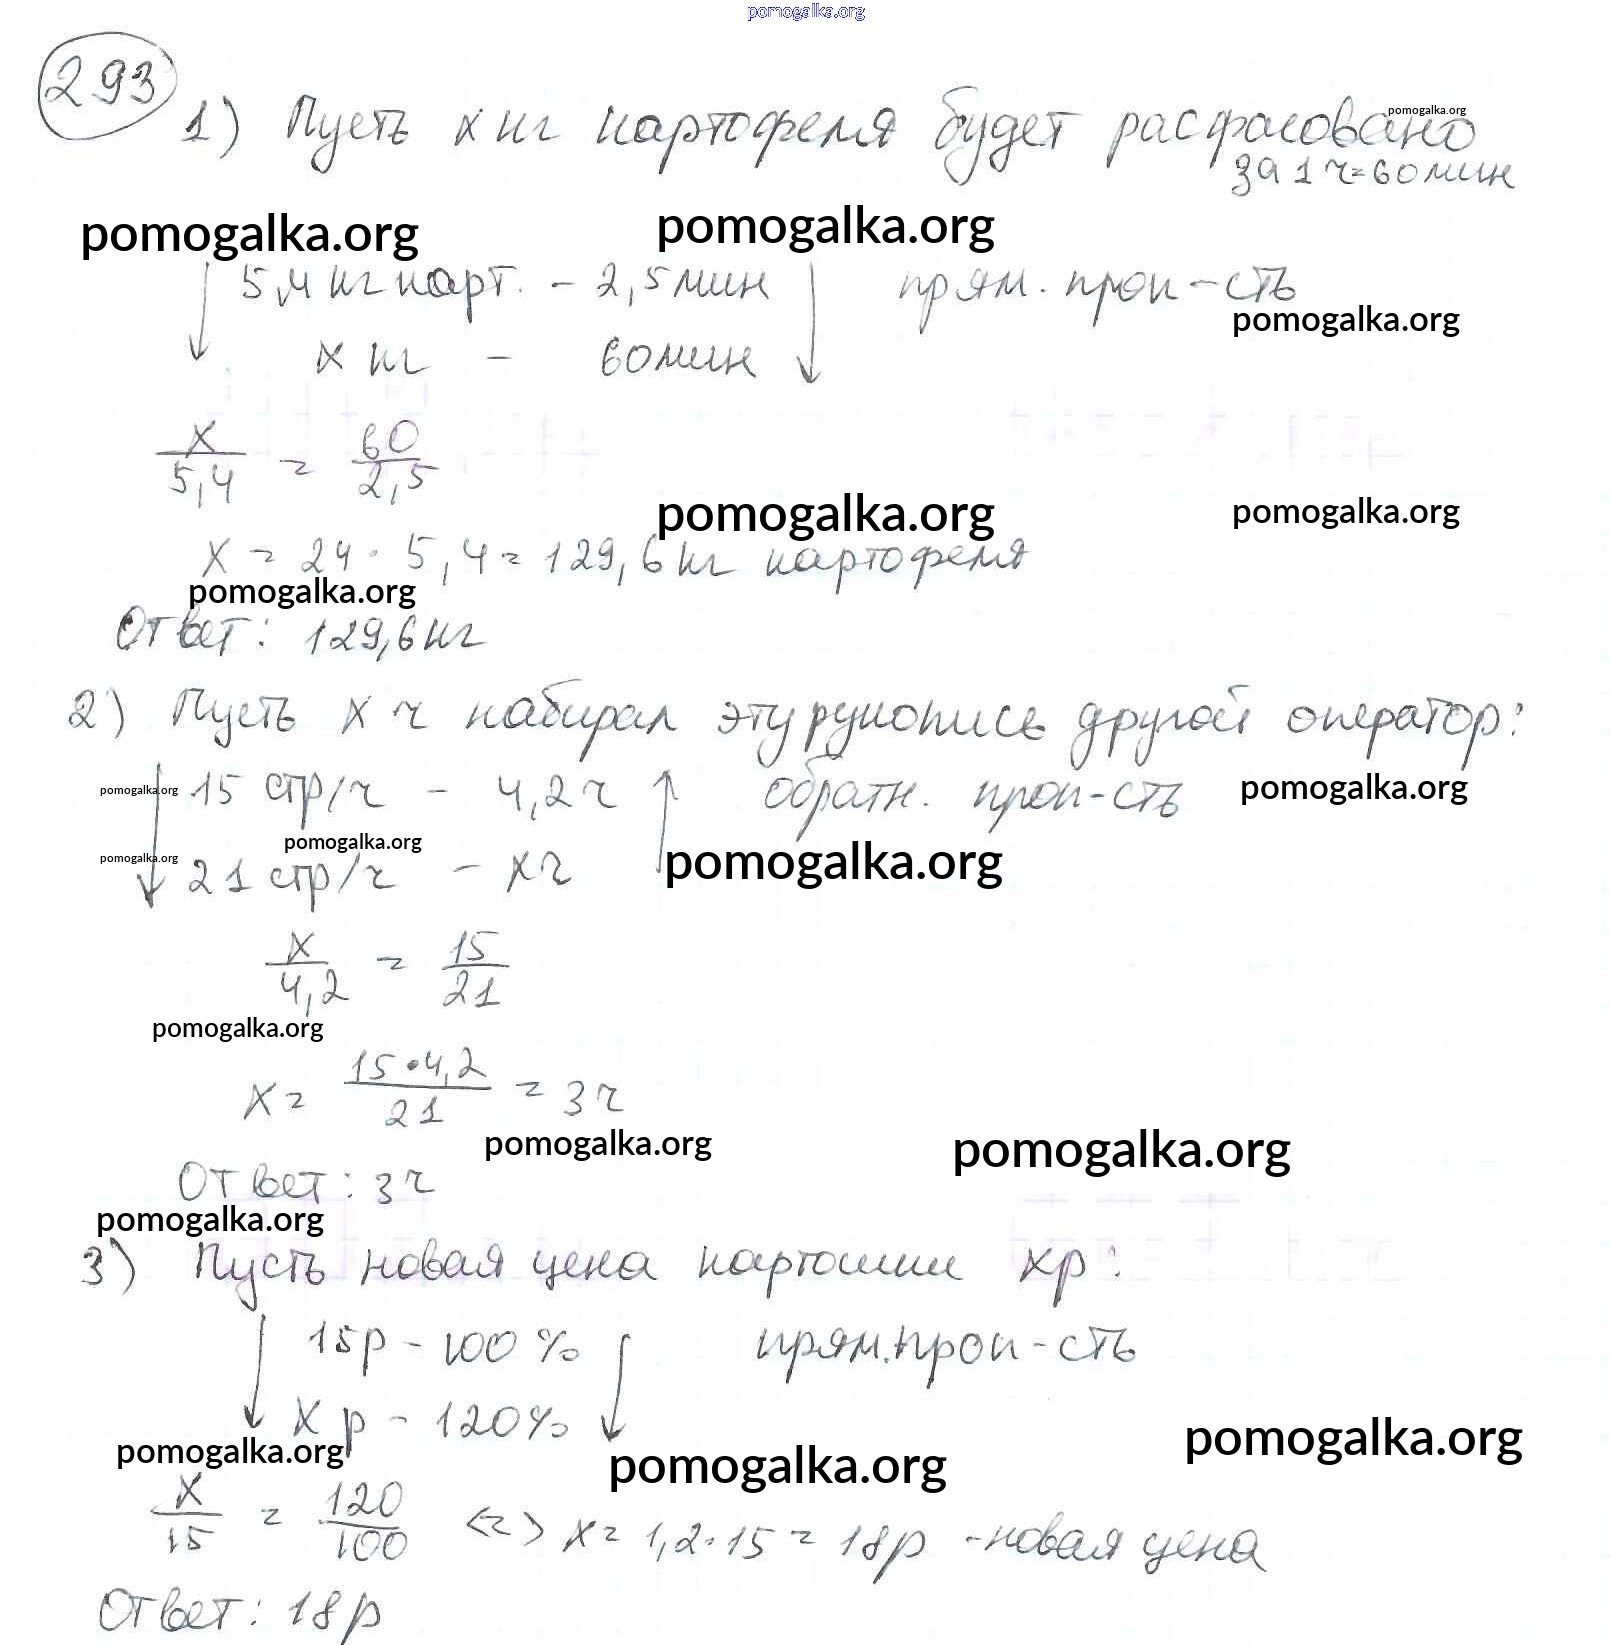 pomogalka.org
293
1) Пусть х кг картофеля будет расфасовано
pomogalka.org
за 1 ч = 60 мин
pomogalka.org pomogalka.org
5,4 кг карт. - 2,5 мин прям. проп-сть
pomogalka.org
х кг - 60 мин
х/5,4 = 60/2,5
pomogalka.org pomogalka.org
х = 24 · 5,4 = 129,6 кг картофеля
pomogalka.org
Ответ: 129,6 кг
2) Пусть х ч набирал эту рукопись другой оператор:
pomogalka.org 15 стр/ч - 4,2 ч обратн. проп-сть pomogalka.org
pomogalka.org
pomogalka.org pomogalka.org
21 стр/ч - х ч
х/4,2 = 15/21
pomogalka.org
х = 15 · 4,2/21 = 3 ч
pomogalka.org pomogalka.org
Ответ: 3 ч
pomogalka.org
3) Пусть новая цена картошки х р:
15 р - 100 % прям. проп-сть
х р - 120%
pomogalka.org pomogalka.org pomogalka.org
х/15 = 120/100 <=> х = 1,2 · 15 = 18 р - новая цена
Ответ: 18 р